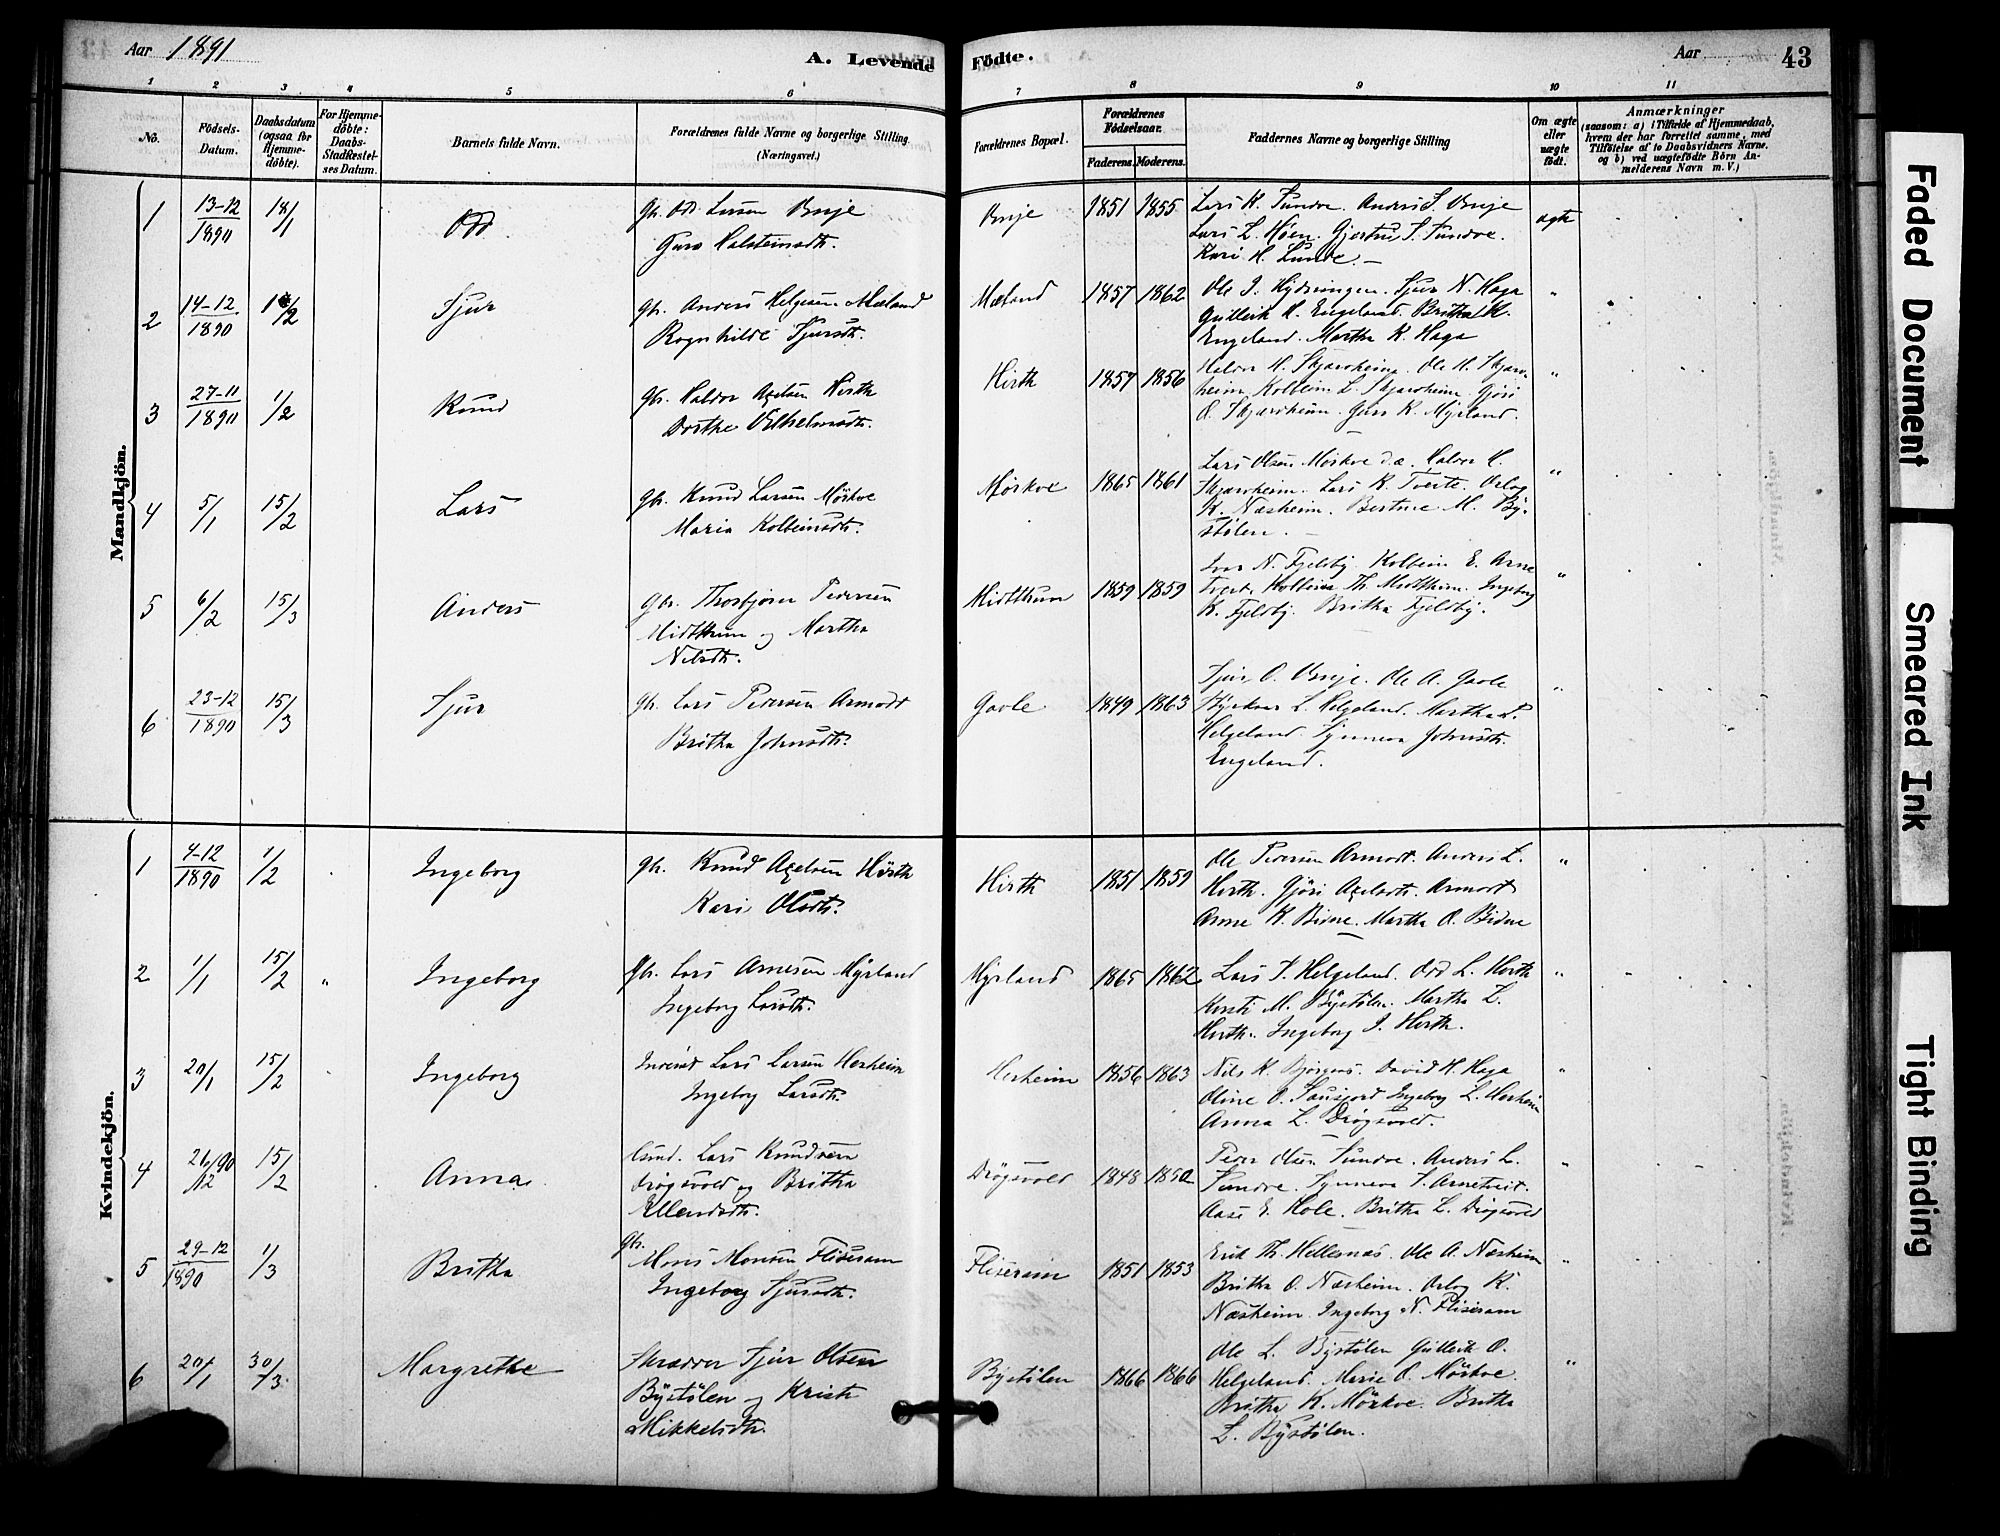 Aar 1891
A. Levende Fødte.
Aar
43
1 2 3 4 5 6 7 8 9 10 11
No.
Fødsels-
Datum.
Daabsdatum
(ogsaa for
Hjemme-
døbte).
For Hjemme-
døbte:
Daabs-
Stadfestel-
ses Datum.
Barnets fulde Navn.
Forældrenes fulde Navne og borgerlige Stilling
(Næringsvei.)
Forældrenes Bopæl.
Forældrenes
Fødselsaar.
Faderens. Moderens.
Faddernes Navne og borgerlige Stilling
Om ægte
eller
uægte
født.
Anmærkninger
(saasom: a) i Tilfælde af Hjemmedaab,
hvem der har forrettet samme, med
Tilføielse af to Daabsvidners Navne.
og b) ved uægtefødte Børn An-
melderens Navn m. V.)
Mandkjön.
1 13-12 1890 18/1 Odd
gbr. Odd Larsen
Guro Halsteinsdtr.
1851 1855
Lars K. Sundve. Anders S.
Lars L. Høen. Gjertru S. Sundve.
Kari H. Lunde.
ægte
2 14-12 1890 Sjur
gbr. Anders Helgesen Mæland
Ragnhilde Sjursdtr.
Mæland 1857 1862
Ole I. Sjur N. Haga
Gulleik K. Engeland. Britha K.
Engeland. Martha K. Haga
"
3 27-11 1890 1/2 Knud
gbr. Haldor Axelsen Hirth
Dorthe Vilhelmsdtr.
Hirth 1857 1856
Haldor H. Skjærvheim. Ole H. Skjærv-
heim. Kolbein L. Skjærvheim. Gjøri
O. Skjærvheim. Guro K. Myrland.
"
4 5/1 15/2 Lars
gbr. Knud Larsen Mørkve
Maria Kolbeinsdtr.
Mørkve 1865 1861
Lars Olsen Mørkve d.æ. Haldor H.
Skjærvheim. Lars K. Tveite. Orlog
K. Næsheim. Bertine M. By-
stølen.
"
5 6/2 15/3 Anders
gbr. Thorbjørn Pedersen
Midtthun og Martha
Nilsdtr.
Midtthun 1859 1859
Ivar N. Fjeldby. Kolbein E. Arne
Kolbein Th. Midtthun. Ingeborg
K. Fjeldby. Britha Fjeldby.
"
6 23-12 1890 15/3 Sjur
gbr. Lars Pedersen Armodt
Britha Johnsdtr.
Gavle 1849 1863
Sjur O. Ole A. Gavle
Styrkaar L. Helgeland. Martha
Helgeland. Synneva Johnsdtr.
Engeland.
"
Kvindekjön.
1 4-12 1890 1/2 Ingeborg
gbr. Knud Axelsen Hirth
Kari Olsdtr.
Hirth 1851 1859
Ole Pedersen Armodt. Anders L.
Hirth. Gjøri Axelsdtr. Armodt
Anne K. Bidne. Martha O. Bidne
"
2 1/1 15/2 " Ingeborg
gbr. Lars Arnesen Myrland
Ingeborg Larsdtr.
Myrland 1865 1862
Lars S. Helgeland. Odd L. Hirth
Kristi M. Bystølen. Martha L.
Hirth. Ingeborg I. Hirth.
"
3 20/1 15/2 Ingeborg
Inderst Lars Larsen Herheim
Ingeborg Larsdtr.
Herheim 1856 1863
Nils K. Bjørgens. David K. Haga
Oline O. Ingeborg L. Herheim
Anna L. Drøgsvold.
"
4 26/12 90 15/2 Anna
Lars Knudsen
Drøgsvold og Britha
Ellendsdtr.
Drøgsvold 1848 1850
Peder Olsen Sundve. Anders L.
Sundve. Synneva S. Arnetveit.
Aase E. Hole. Britha L. Drøgsvold
"
5 29-12 1890 1/3 Britha
gbr. Mons Monsen Fliseram
Ingeborg Sjursdtr.
Fliseram 1851 1853
Erik Th. Hellesnæs. Ole A. Næsheim
Britha O. Næsheim. Orlog K.
Næsheim. Ingeborg N. Fliseram
"
6 20/1 30/3 Margrethe
Skrædder Sjur Olsen
Bystølen og Kristi
Mikkelsdtr.
Bystølen 1866 1866
Ole L. Bystølen Gullerik O.
Helgeland. Marie O. Mørkve
Britha K. Mørkve. Britha
L. Bystølen.
"
Faded Document
Smeared Ink
Tight Binding